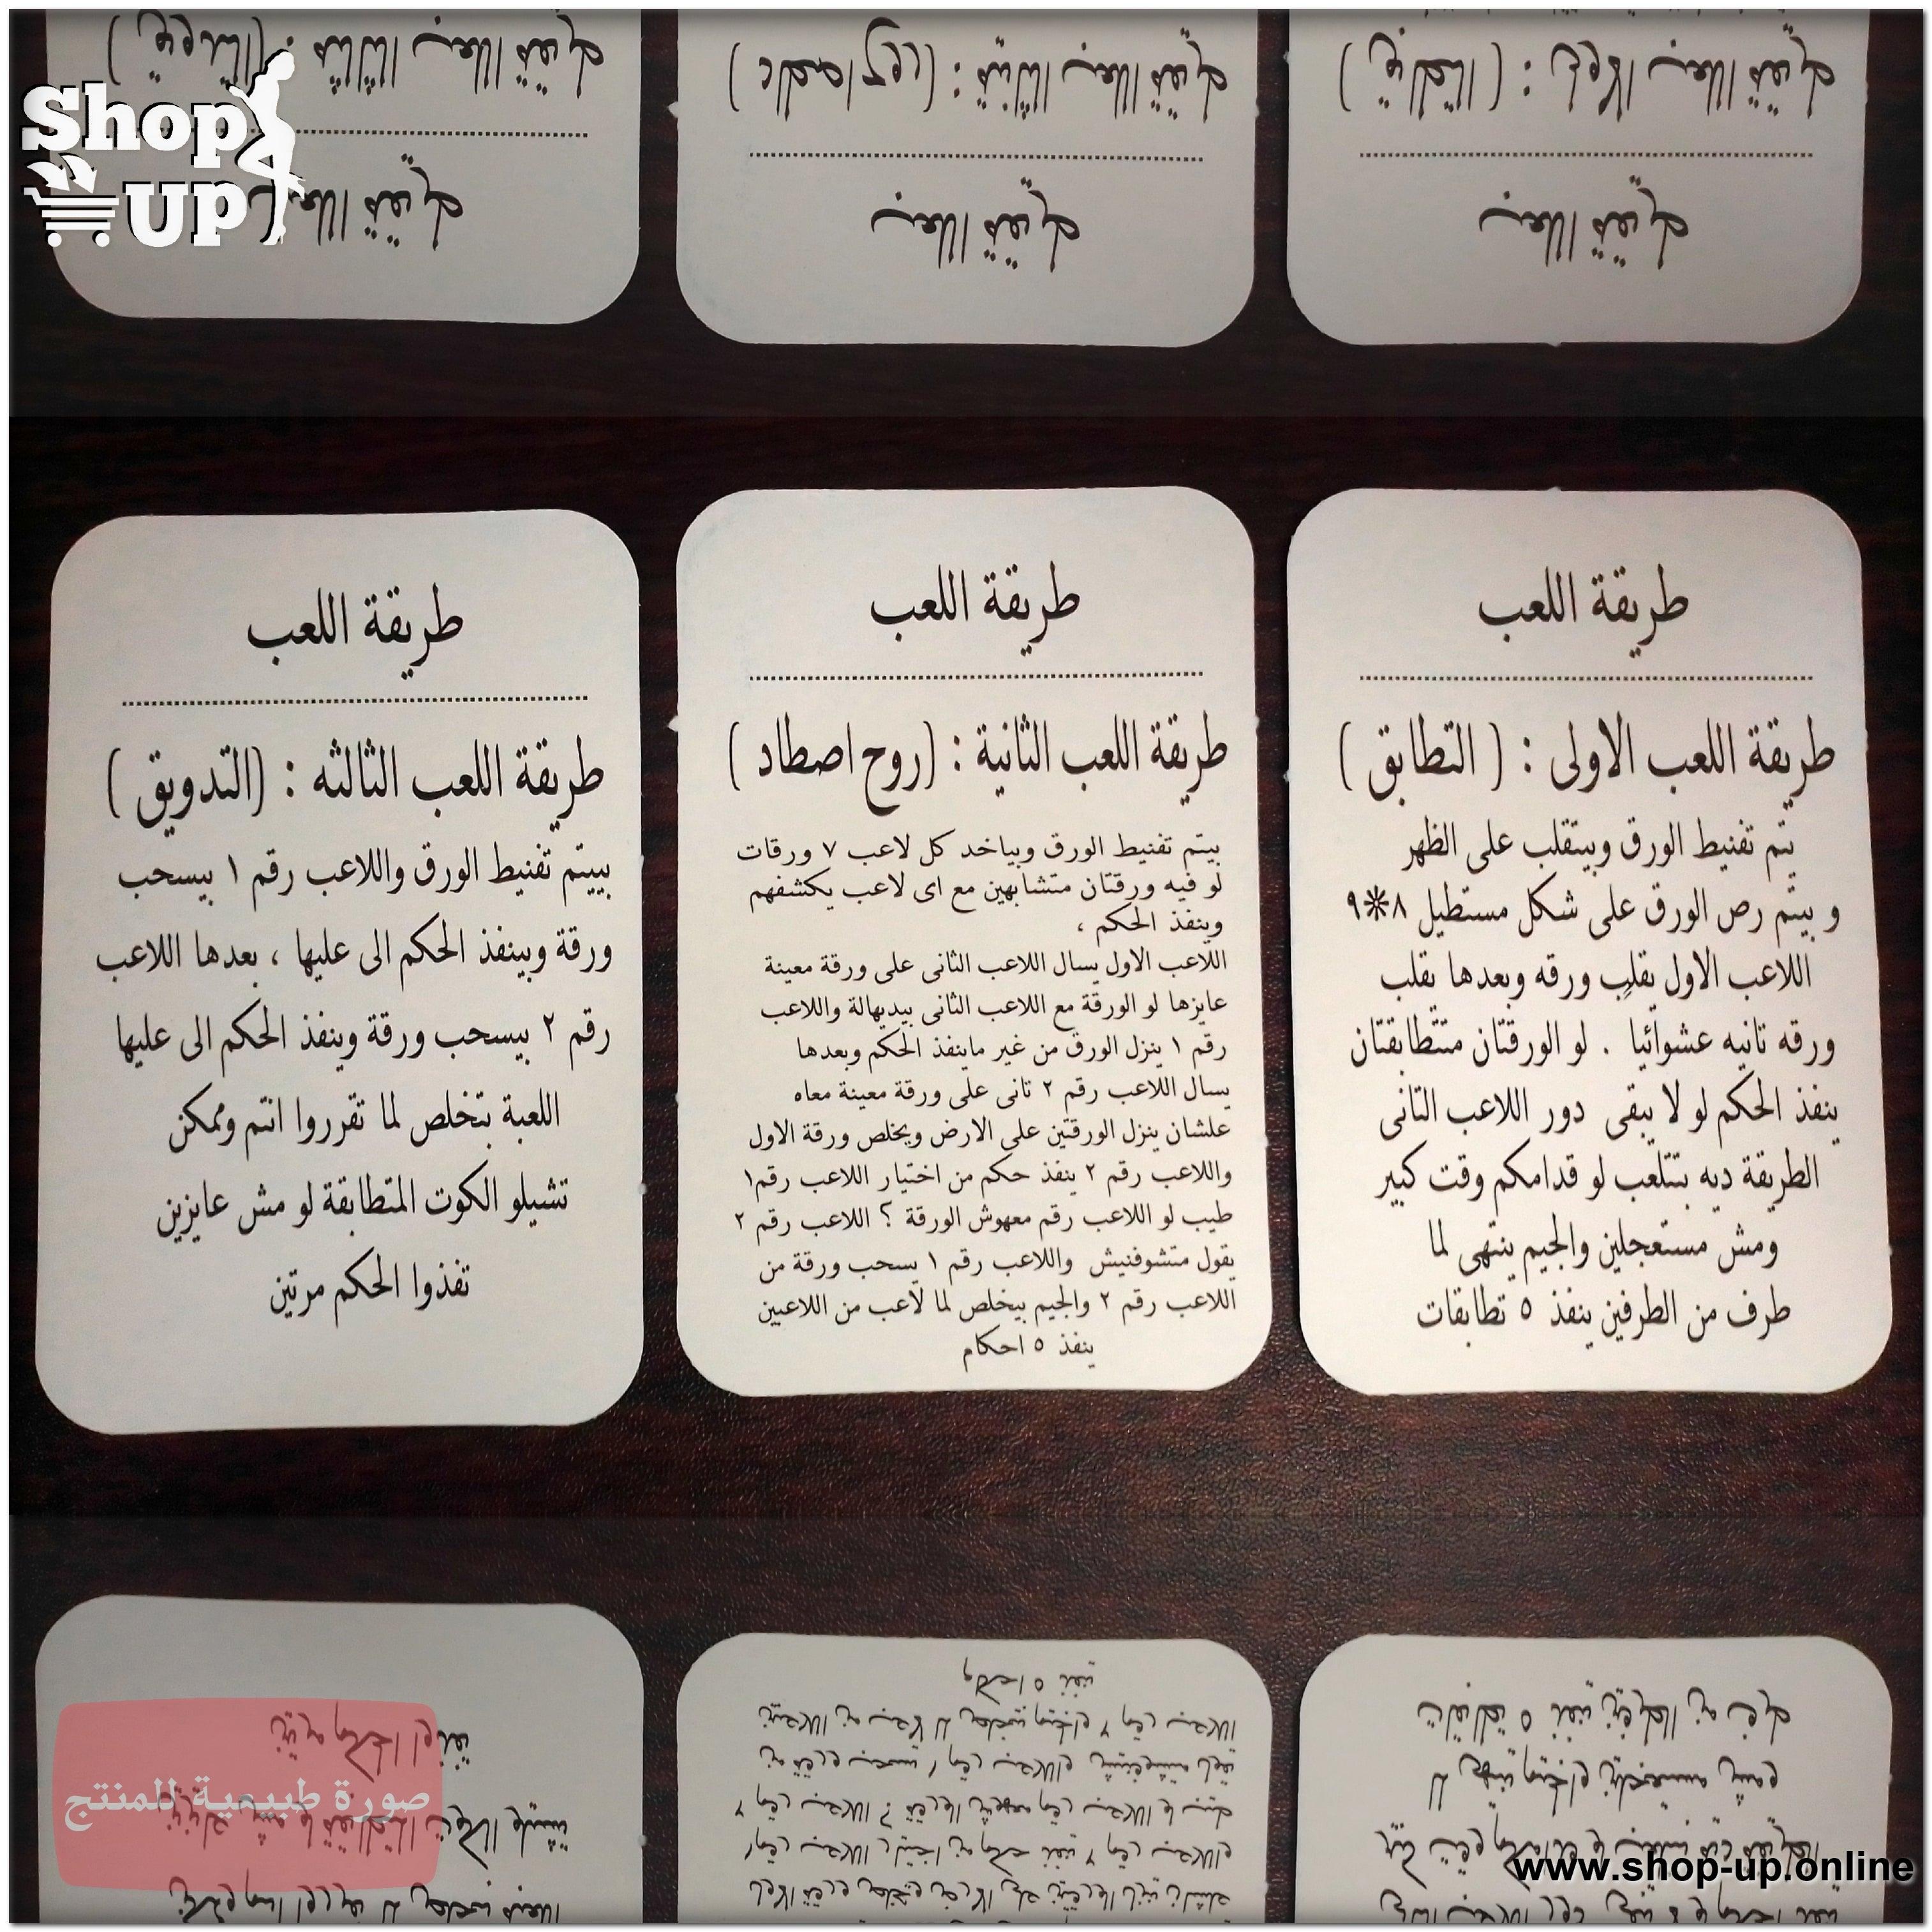 Shop
UP
طريقة اللعب
طريقة اللعب الاولى : ( التطابق )
يتم تفنيط الورق وبيتقلب على الظهر
و بيتم رص الورق على شكل مستطيل ٨*٩
اللاعب الاول يقلب ورقه وبعدها يقلب
ورقه تانيه عشوائيا . لو الورقتان متتطابقتان
ينفذ الحكم لو لا يبقى دور اللاعب التانى
الطريقة ديه بتتلعب لو قدامكم وقت كبير
ومش مستعجلين والجيم ينتهى لما
طرف من الطرفين ينفذ ٥ تطابقات
طريقة اللعب
طريقة اللعب الثانية : (روح اصطاد )
بيتم تفنيط الورق وبياخد كل لاعب ٧ ورقات
لو فيه ورقتان متشابهين مع اى لاعب يكشفهم
وينفذ الحكم ،
اللاعب الاول يسال اللاعب الثانى على ورقة معينة
عايزها لو الورقة مع اللاعب الثانى بيديهالة واللاعب
رقم ١ ينزل الورق من غير ماينفذ الحكم وبعدها
يسال اللاعب رقم ٢ تانى على ورقة معينة معاه
علشان ينزل الورقتين على الارض ويخلص ورقة الاول
واللاعب رقم ٢ ينفذ حكم من اختيار اللاعب رقم١
طيب لو اللاعب رقم معهوش الورقة ؟ اللاعب رقم ٢
يقول متشوفنيش واللاعب رقم ١ يسحب ورقة من
اللاعب رقم ٢ والجيم بيخلص لما لاعب من اللاعبين
ينفذ ٥ احكام
طريقة اللعب
طريقة اللعب الثالثه : (التدويق )
بييتم تفنيط الورق واللاعب رقم ١ بيسحب
ورقة وبينفذ الحكم الى عليها ، بعدها اللاعب
رقم ٢ بيسحب ورقة وينفذ الحكم الى عليها
اللعبة بتخلص لما تقرروا انتم وممكن
تشيلو الكوت المتطابقة لو مش عايزين
تفذوا الحكم مرتين
صورة طبيعية للمنتج
www.shop-up.online